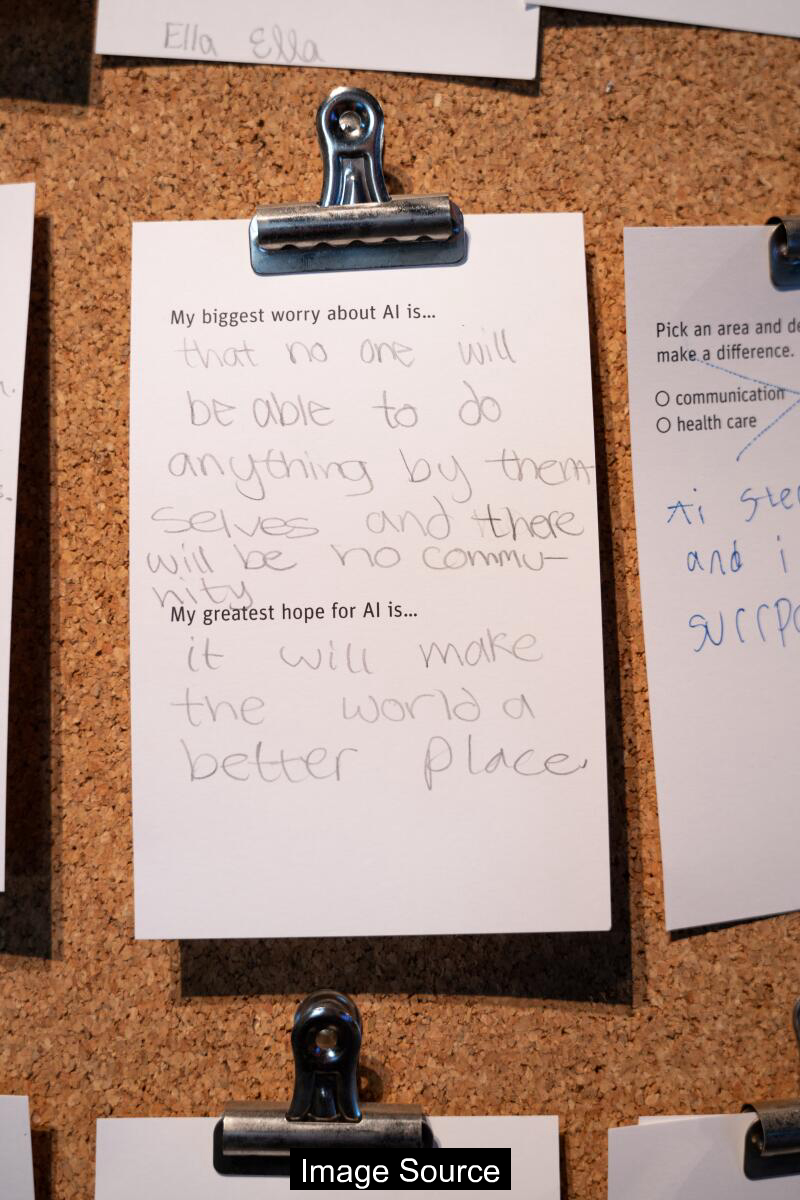 Ella Ella
My biggest worry about AI is...
that no one will
be able to do
anything by them
selves and there
will be no commu-
nity
My greatest hope for AI is...
it will make
the world a
better place.
Pick an area and de
make a difference.
communication
health care
Ai
and i
Image Source